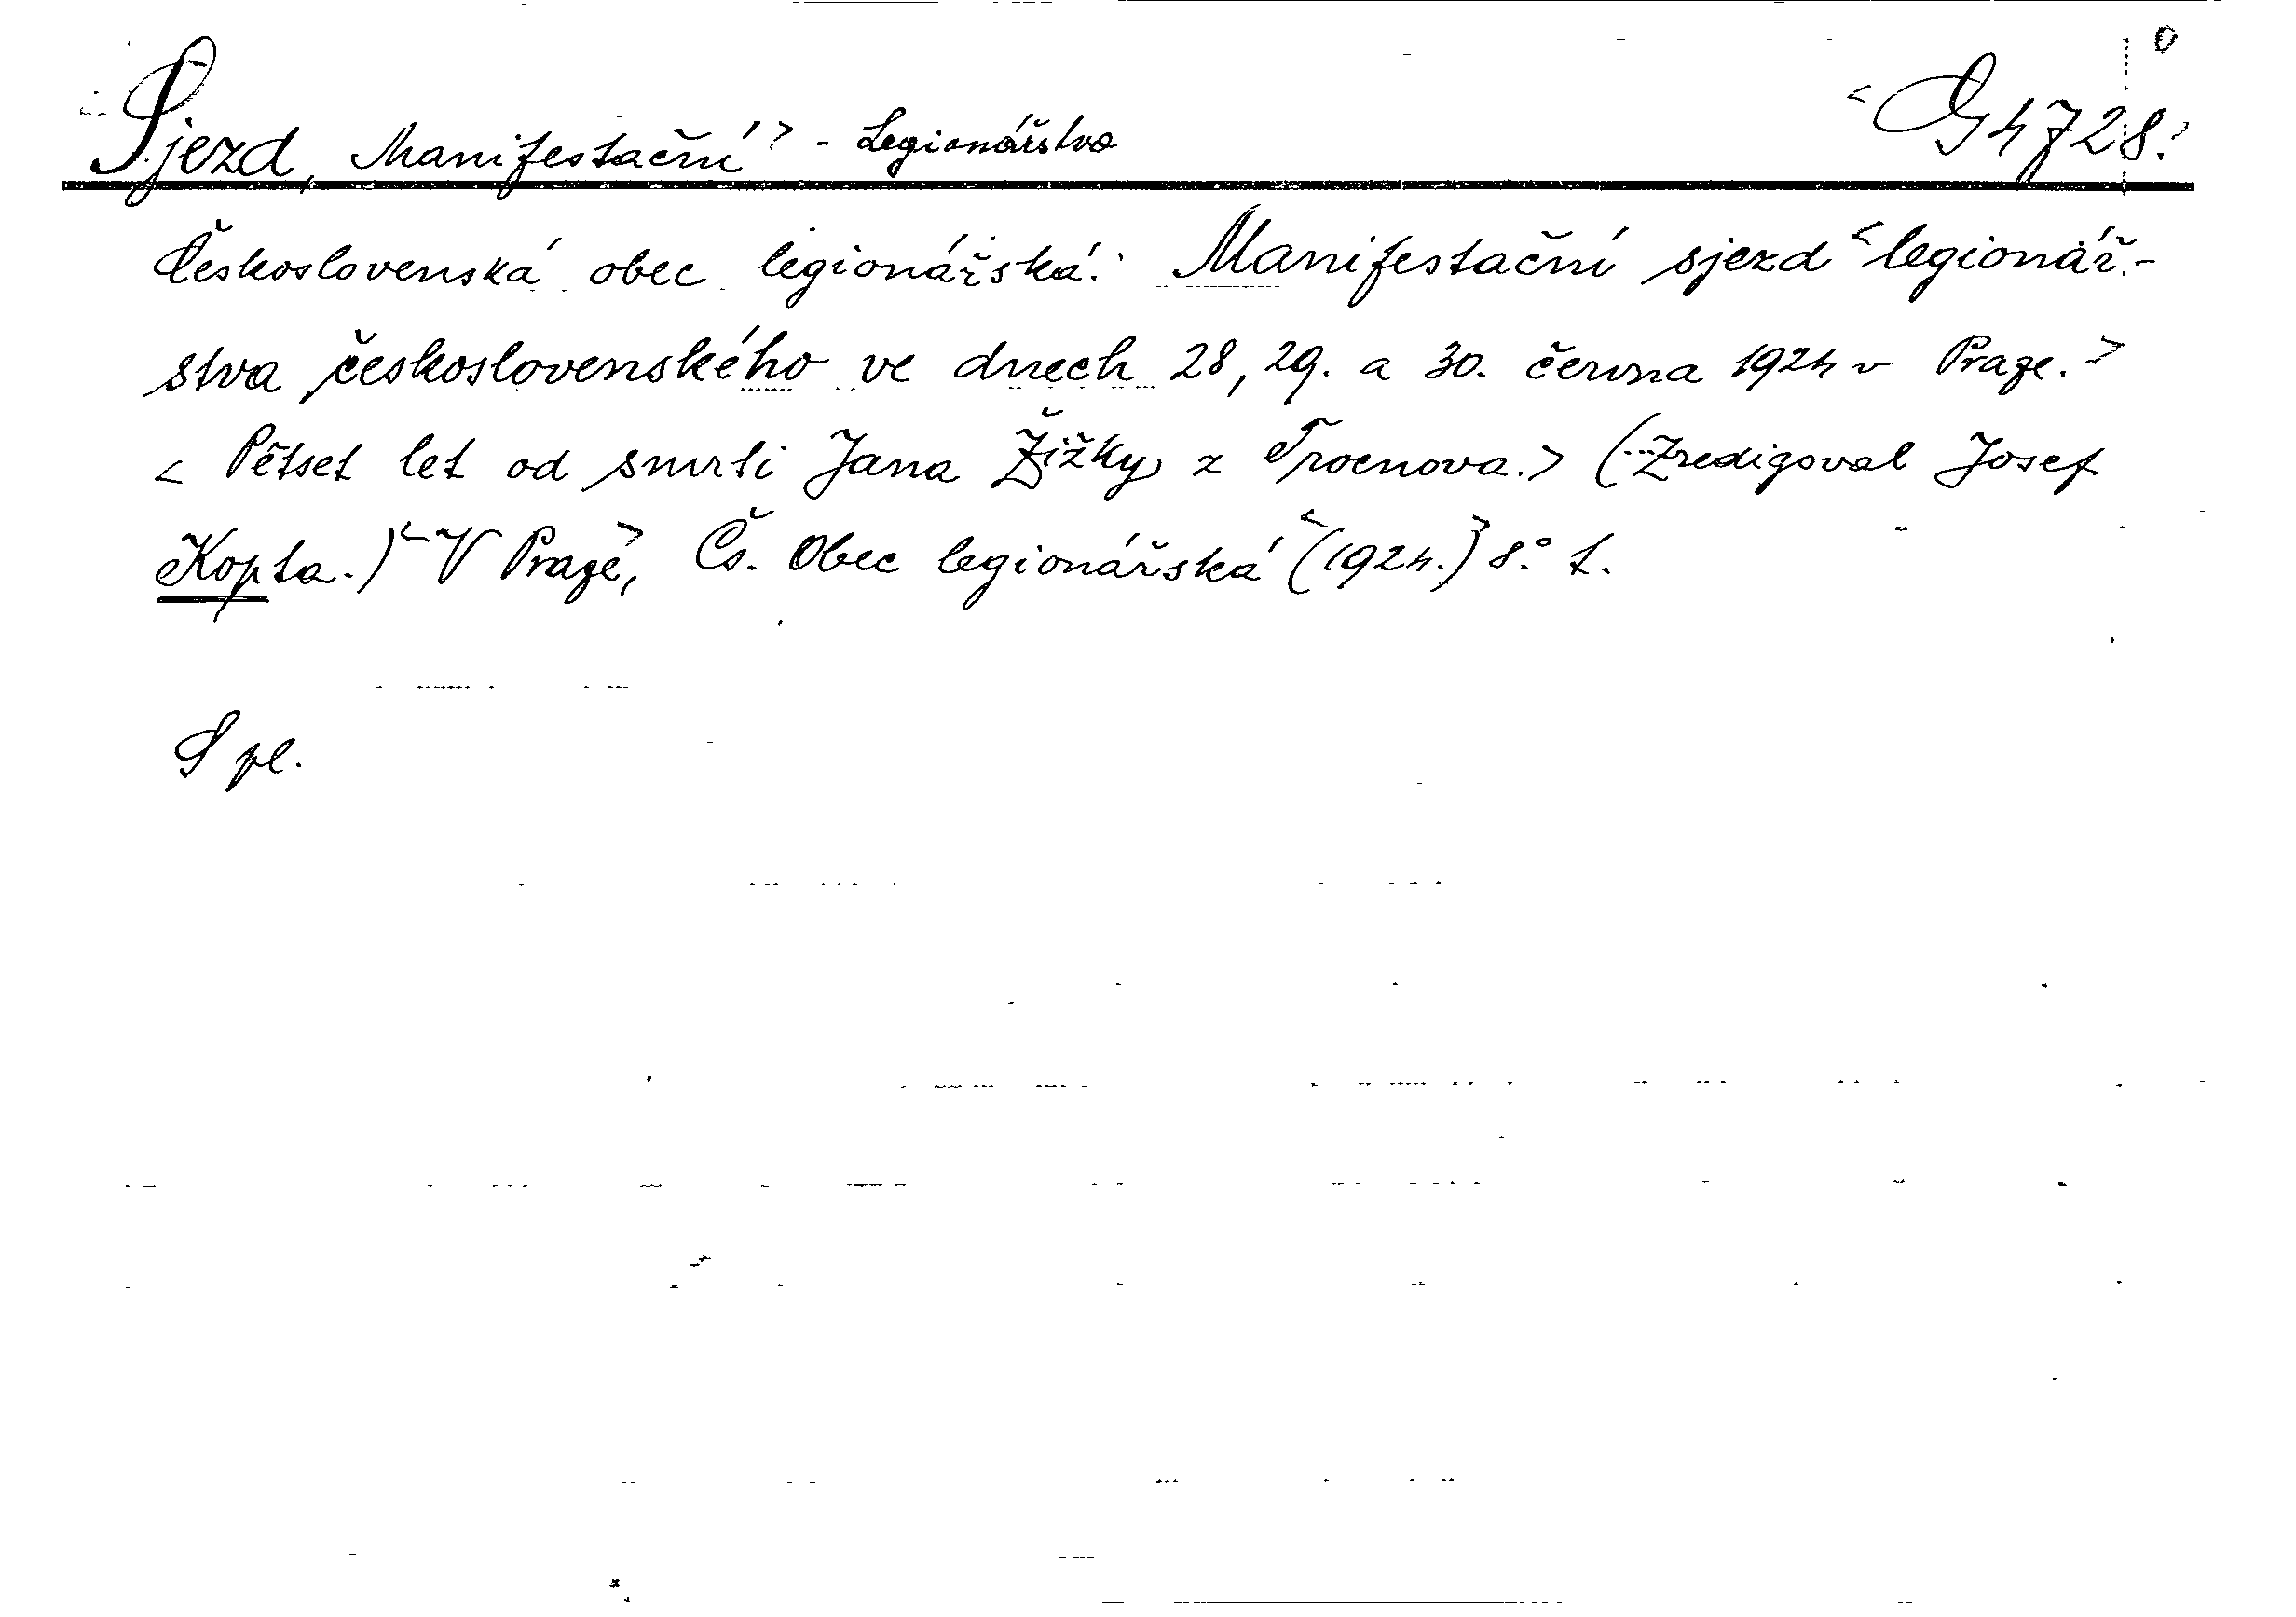 Sjezd, Manifestační > - Legionářstvo < G 4728.>
Československá obec legionářská: Manifestační sjezd < legionář-
stva československého ve dnech 28, 29. a 30. června 1924 v Praze. >
< Pětset let od smrti Jana Žižky z Trocnova. > (Zredigoval Josef
Kopta.) < V Praze >, Čs. Obec legionářská < (1924.) > 8.° S.
S pl.